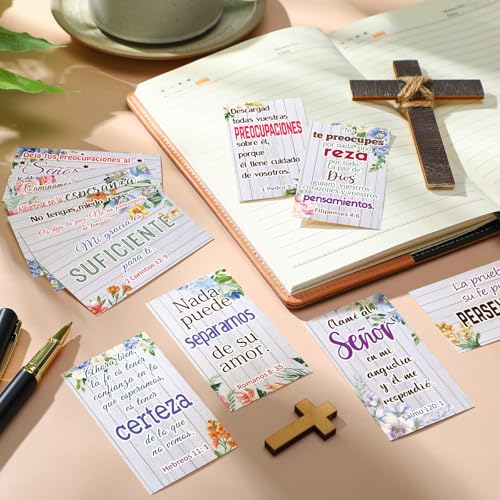 Deja tus preocupaciones al
Señor
Caminamos
Alégrense en la esperanza
No tengas miedo
Mi gracia es
SUFICIENTE
para ti
2 Corintios 12:9
Descargad
todas vuestras
PREOCUPACIONES
sobre él,
porque
él tiene cuidado
de vosotros.
1 Pedro
No
te preocupes
por nada
reza
por todo.
La paz de
Dios
guitará vuestros
corazones y vuestros
pensamientos.
Filipenses 4:6
Ahora bien,
la fe es tener
confianza en lo
que esperamos,
es tener
certeza
de lo que
no vemos.
Hebreos 11:1
Nada
puede
separarnos
de su
amor.
Romanos 8:35
Clamé al
Señor
en mi
angustia
y él me
respondió.
Salmo 120:1
La prueba
su fe p
PERSE